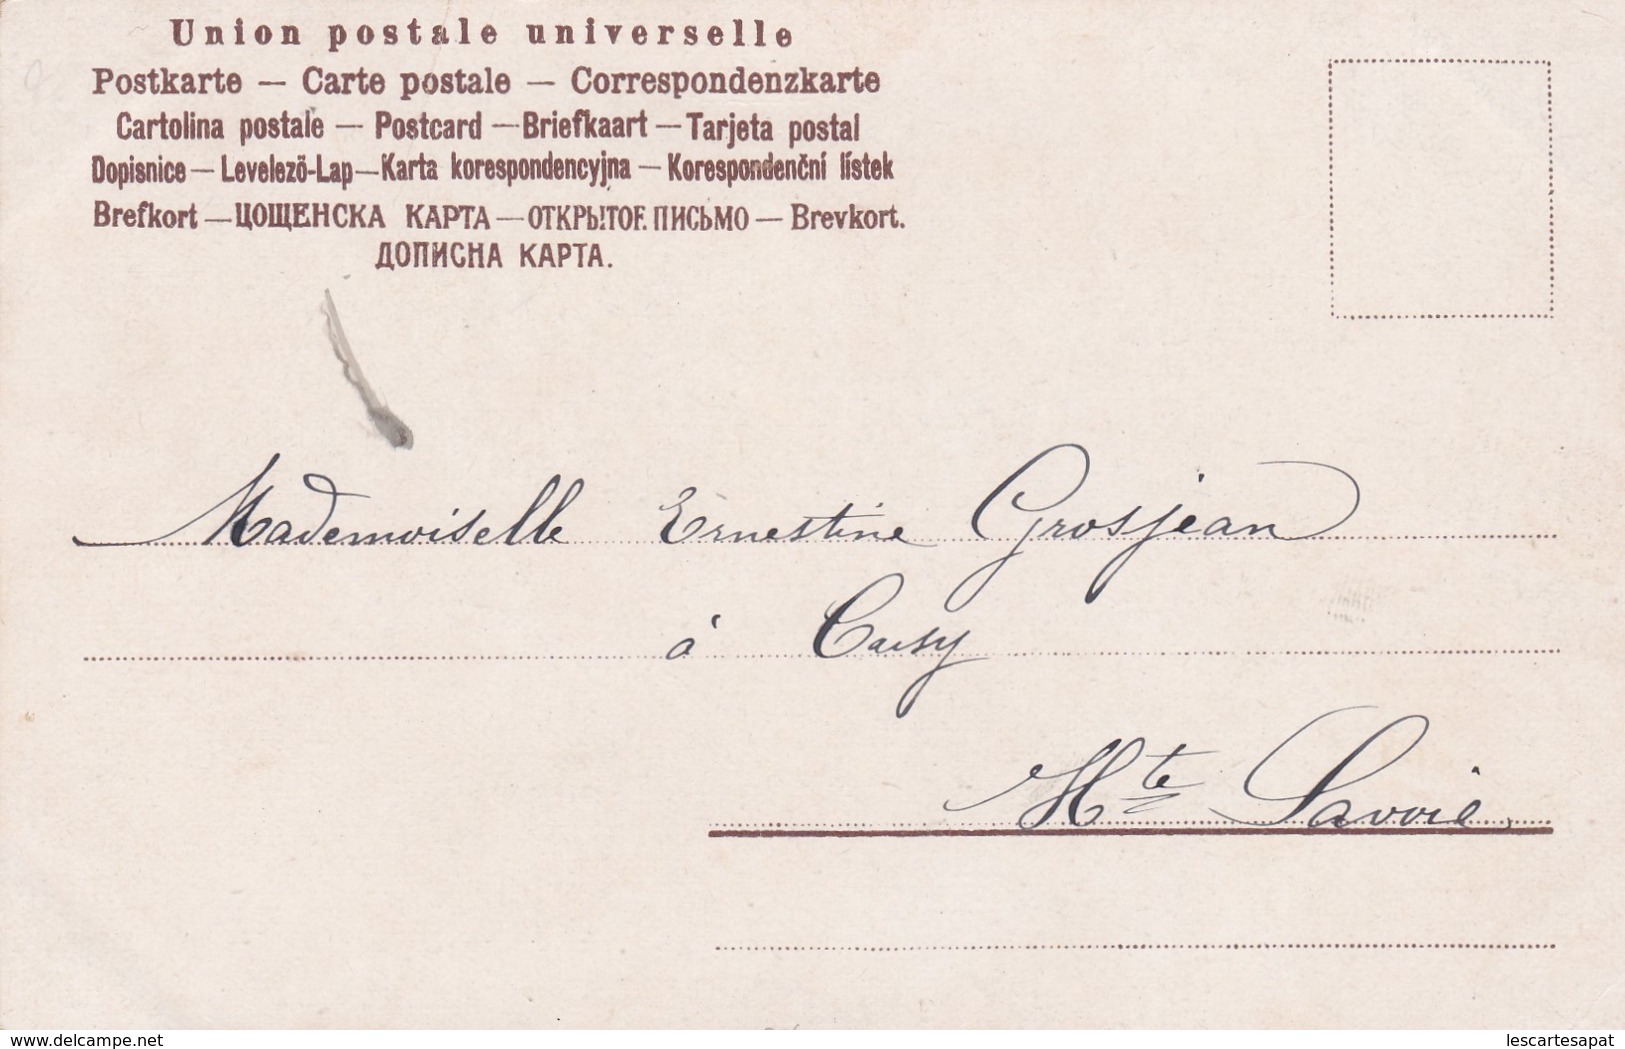 Union postale universelle
Postkarte — Carte postale — Correspondenzkarte
Cartolina postale — Postcard — Briefkaart — Tarjeta postal
Dopisnice — Levelező-Lap — Karta korespondencyjna — Korespondenční lístek
Brefkort — ЦОЩЕНСКА КАРТА — ОТКРЫТОЕ ПИСЬМО — Brevkort.
ДОПИСНА КАРТА.
Mademoiselle Ernestine Grosjean
à Cusy
Hte Savoie
delcampe.net
lescartesapat